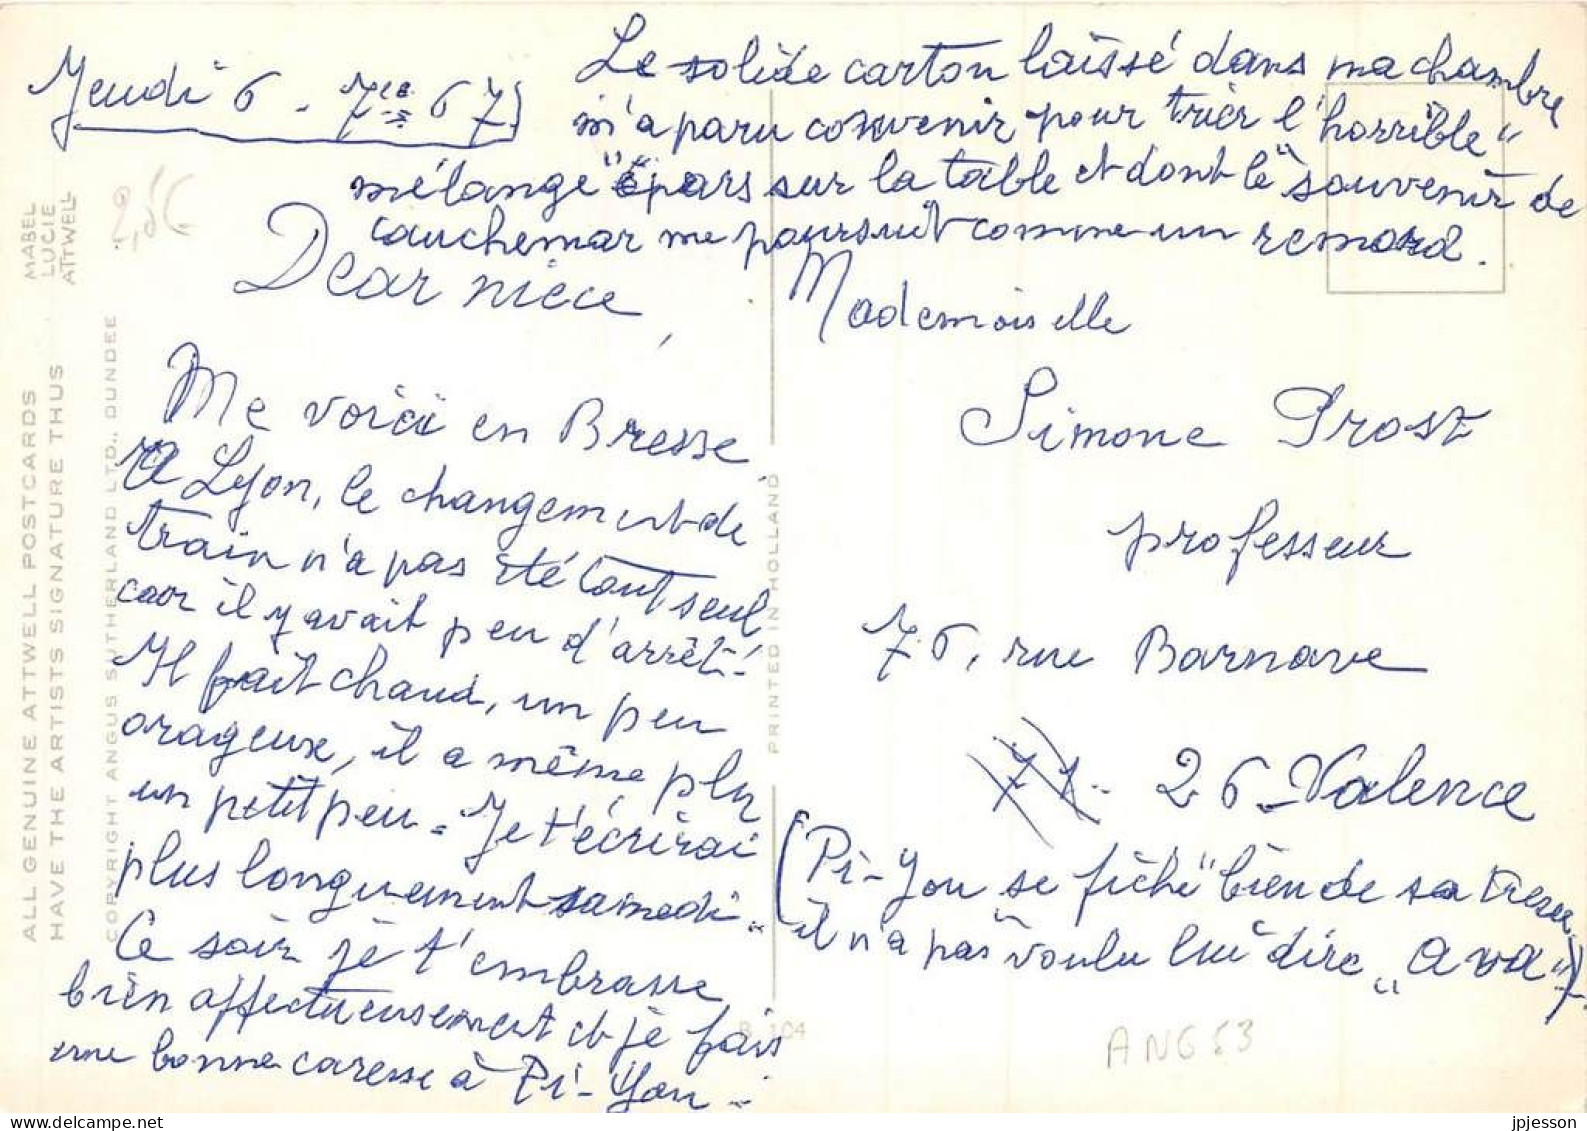 Jeudi 6 - 7re 67
Le solide carton laissé dans ma chambre
m'a paru convenir pour trier l'"horrible"
mélange "épars" sur la table et dont le "souvenir de
cauchemar me poursuit comme un remord.
Dear nièce,
Me voici en Bresse
A Lyon, le changement de
train n'a pas été tout seul
car il y avait peu d'arrêt.
Il fait chaud, un peu
orageux, il a même plu
un petit peu - Je t'écrirai
plus longuement samedi.
Ce soir je t'embrasse
bien affectueusement et je fais
une bonne caresse à Pi-You -
Mademoiselle
Simone Prost
professeur
76, rue Barnave
71- 26-Valence
(Pi-You se "fiche" bien de sa
il n'a pas voulu lui dire "a va")
ALL GENUINE ATTWELL POSTCARDS
HAVE THE ARTISTS SIGNATURE THUS
MABEL
LUCIE
ATTWELL
COPYRIGHT ANGUS SUTHERLAND LTD., DUNDEE
PRINTED IN HOLLAND
B 104
2,5€
ANG 53
jpjesson